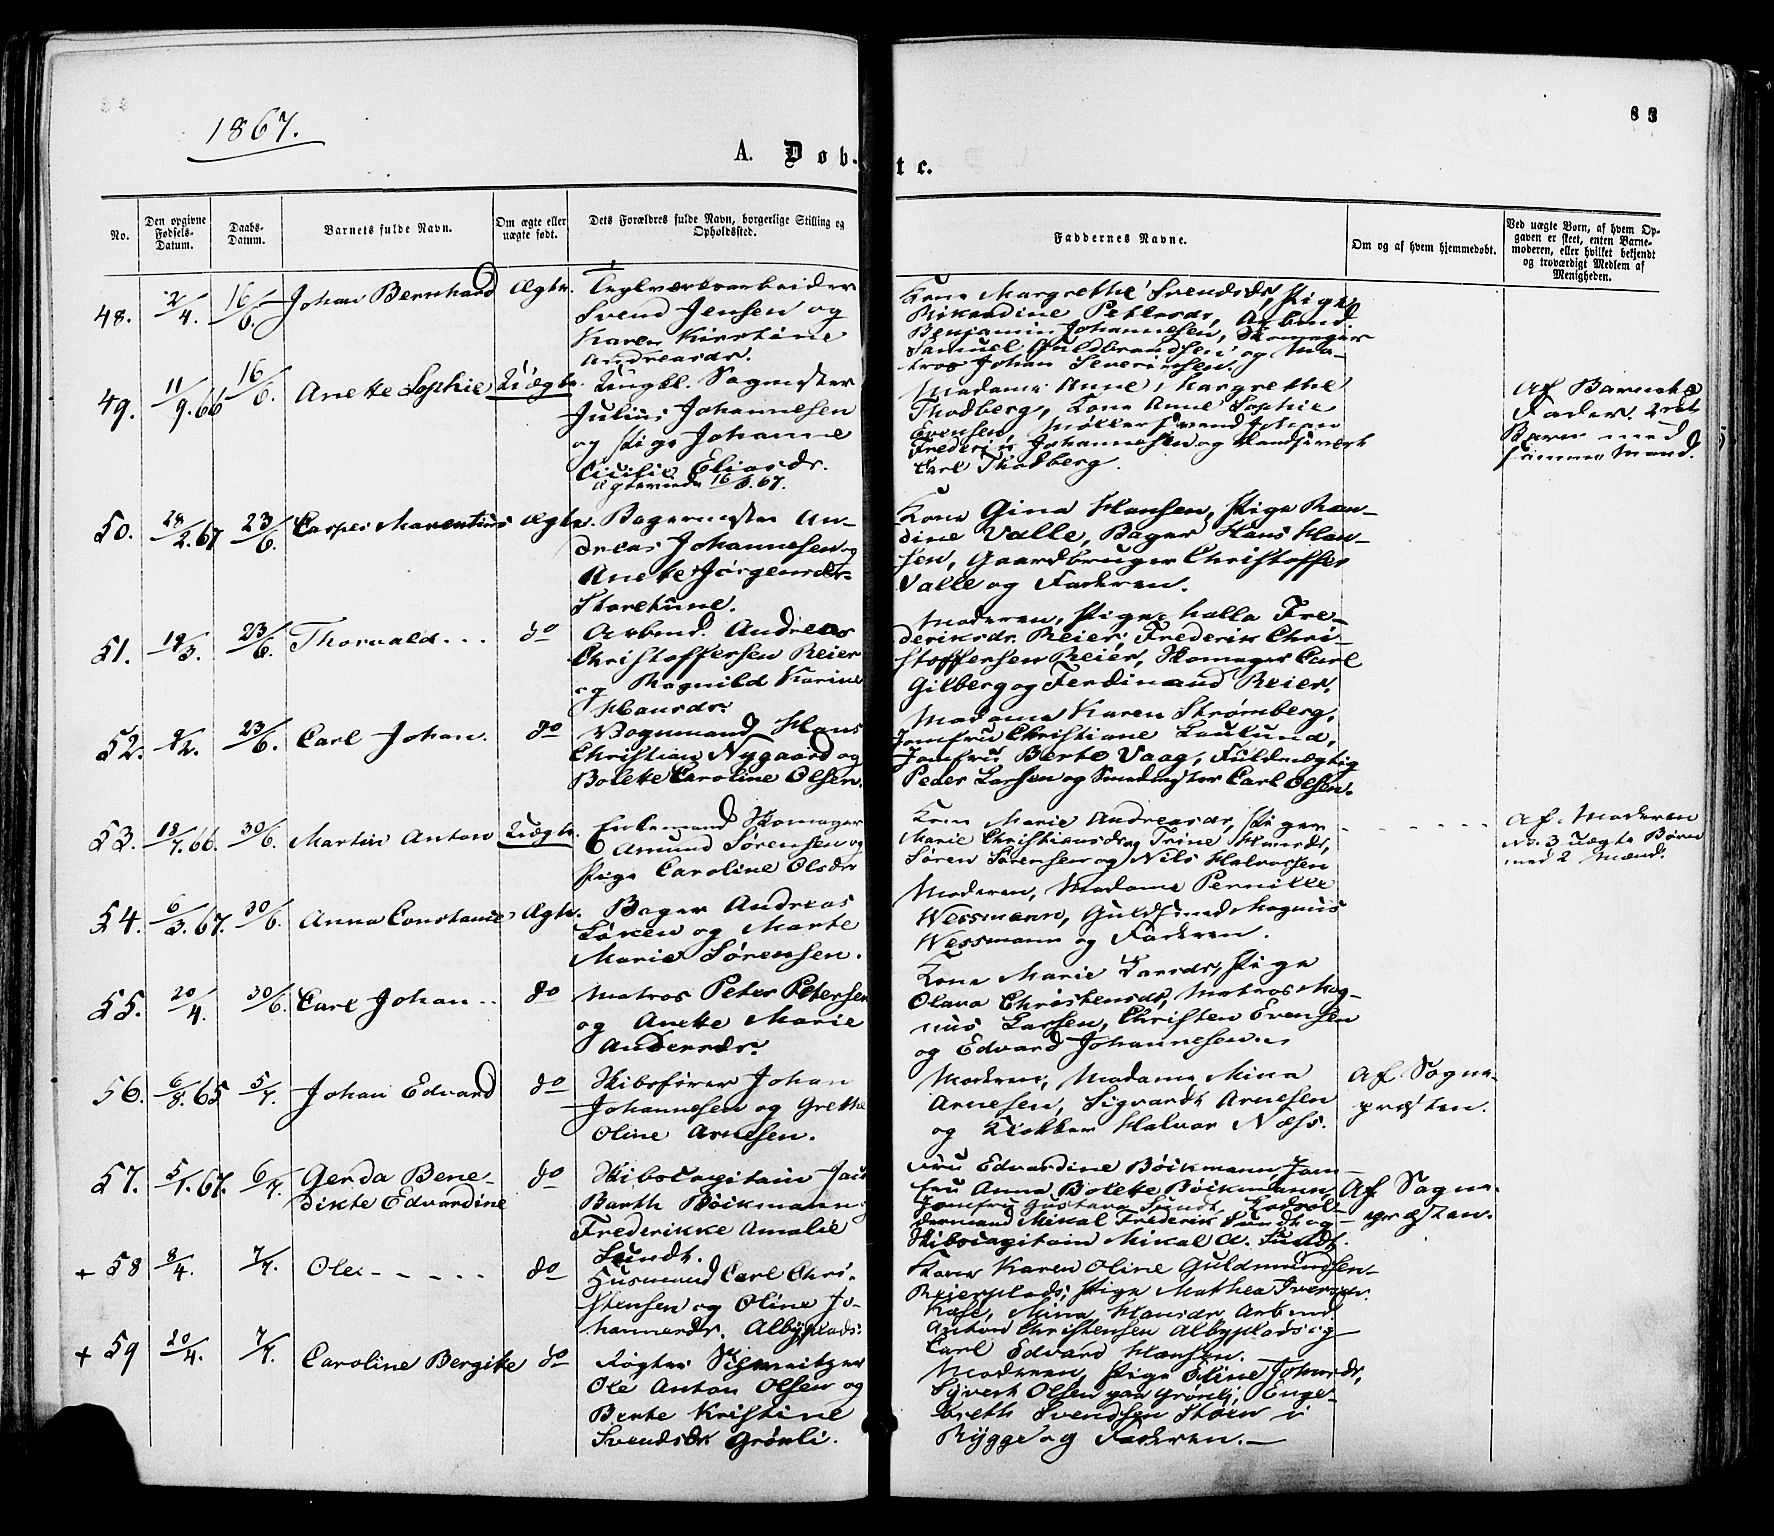 1867.
83
A. Døbte.
No.
Den opgivne Fødsels-Datum.
Daabs-Datum.
Barnets fulde Navn.
Om ægte eller uægte født.
Dets Forældres fulde Navn, borgerlige Stilling og Opholdssted.
Faddernes Navne.
Om og af hvem hjemmedøbt.
Ved uægte Børn, af hvem Opgaven er skeet, enten Barnemoderen, eller hvilket bekjendt og troværdigt Medlem af Menigheden.
48. 2/4. 16/6. Johan Bernhard Ægte. Teglværksarbeider
Svend Jensen og
Karen Kirstine
Andreasdr.
Kone Margrethe Svendsdr, Pige
Rikardine Petersdr, Arbmd
Benjamin Johannesen, Skomager
Samuel Guldbrandsen og Ma-
tros Johan Severinsen.
49. 11/9.66 16/6. Anette Sophie Uægte. Ungkl. Sagmester
Julius Johannesen
og Pige Johanne
Cicilie Eliasdr.
Ægteviede 16/6.67.
Madame Anne Margrethe
Thodberg, Kone Anne Sophie
Evensen, Møllersvend Johan
Frederik Johannesen og Handskemagr
Carl Thodberg.
Af Barnets
Fader. 2det
Barn med
samme Mand.
50. 28/2.67 23/6. Casper Marentius Ægte. Bagermester An-
dreas Johannesen og
Anette Jørgensdr
Støretune.
Kone Gina Hansen, Pige Ran-
dine Valle, Bager Hans Han-
sen, Gaardbruger Christoffer
Valle og Faderen.
51. 19/3. 23/6. Thorvald... do Arbmd. Andreas
Christoffersen Reier
og Ragnild Karine
Hansdr.
Moderen, Pige Halla Fre-
deriksdr. Reier, Frederik Chri-
stoffersen Reier, Skomager Carl
Gilberg og Ferdinand Reier.
52. 9/2. 23/6. Carl Johan. do Vognmand Hans
Christian Nygaard og
Bolette Caroline Olsen.
Madame Karen Strømberg,
Jomfru Christiane Laulund,
Jomfru Berte Vaag, Fuldmægtig
Peder Larsen og Smedmester Carl Olsen.
53. 13/7.66. 30/6. Martin Anton Uægte. Enkemand Skomager
Amund Sørensen og
Pige Caroline Olsdr
Kone Marie Andreasdr, Piger
Marie Christiansdr og Trine Hansdr,
Søren Sørensen og Nils Halvorsen
Af Moderen
No. 3 uægte Børn
med 2 Mænd.
54. 6/3.67. 30/6. Anna Constance Ægte. Bager Andreas
Løken og Marte
Marie Sørensen.
Moderen, Madame Pernille
Wessmann, Guldsmed Magnus
Wessmann og Faderen.
55. 20/4. 30/6. Carl Johan.. do Matros Peter Petersen
og Anette Marie
Andersdr.
Kone Marie Larsdr, Pige
Olava Christensdr, Matros Mag-
nus Larsen, Christen Evensen
og Edvard Johannesen.
56. 6/8.65 5/7. Johan Edvard do Skibsfører Johan
Johannesen og Grethe
Oline Arnesen.
Moderen, Madame Mina
Arnesen, Sigvardt Arnesen
og Klokker Halvor Næss.
Af Sogne-
præsten.
57. 5/1.67. 6/7. Gerda Bene-
dikte Edvardine do Skibscapitain Jac
Barth Böickmann
Frederikke Amalie
Sundt.
Fru Edvardine Böickmann, Jom-
fru Anna Bolette Böickmann,
Jomfru Gustava Sundt, Lodsol-
dermand Mikal Frederik Sundt og
Skibscapitain Mikal A. Sundt.
Af Sogne-
præsten.
+ 58 8/4. 7/7. Ole - - - - - do Husmand Carl Chri-
stensen og Oline Jo-
hannesdr. Albyplads.
Kone Karen Oline Guldmundsen
Reierplads, Pige Mathea Iversdr.
Kase, Mina Hansdr, Arbmd.
Anton Christensen Albyplads og
Carl Edvard Hansen.
+ 59 20/4. 7/7. Caroline Bergitte do Røgter
Ole Anton Olsen og
Berte Kristine
Svendsdr Grønli.
Moderen, Pige Eline Johansdr,
Syvert Olsen paa Grønli, Enge-
breth Svendsen Støen i
Rygge og Faderen.